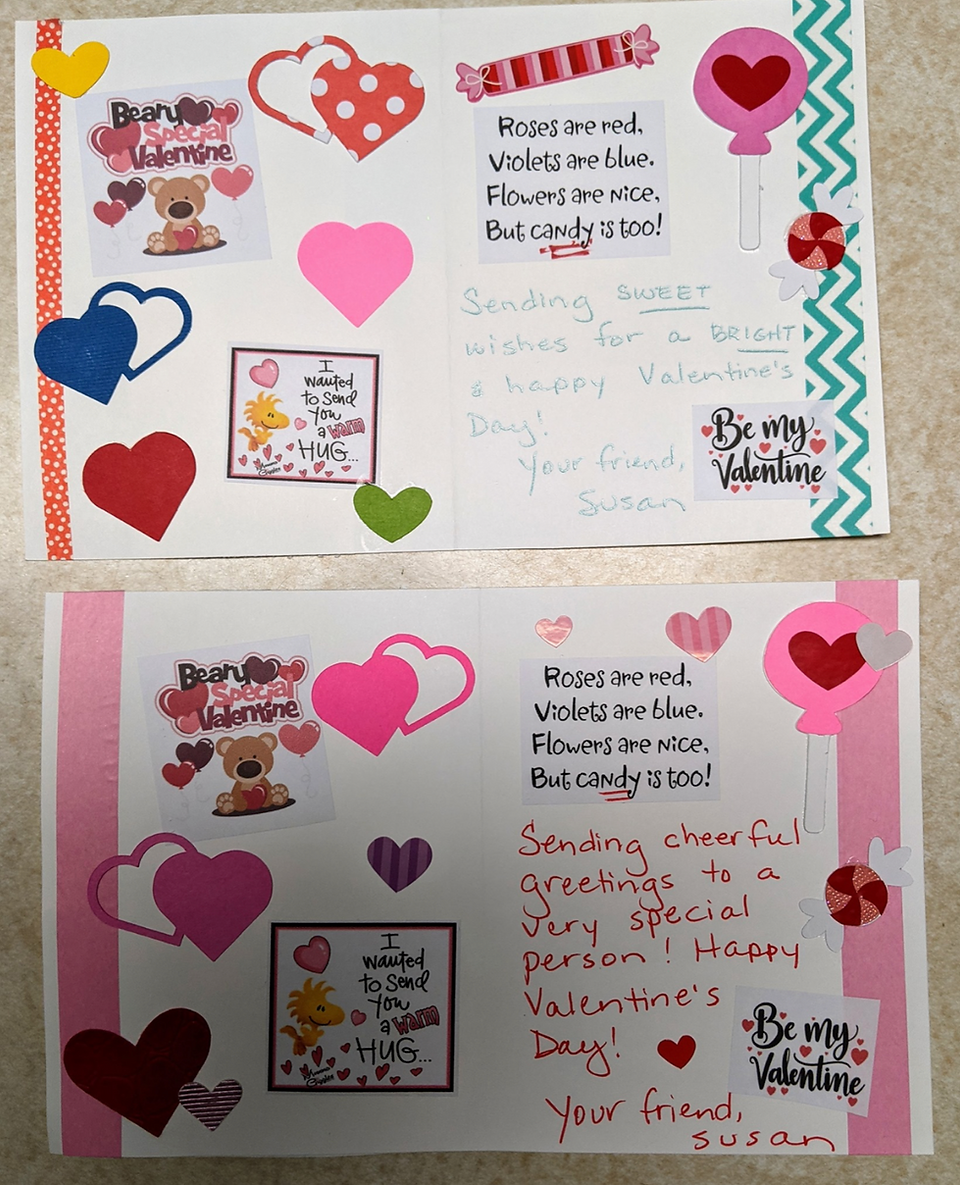 Beary
Special
Valentine
I
wanted
to Send
You
a warm
HUG...
Roses are red,
Violets are blue.
Flowers are Nice,
But candy is too!
Sending SWEET
wishes for a BRIGHT
& happy Valentine's
Day!
Your friend,
Susan
Be my
Valentine
Beary
Special
Valentine
I
wanted
to Send
You
a warm
HUG...
Roses are red,
Violets are blue.
Flowers are Nice,
But candy is too!
Sending cheerful
greetings to a
very special
person! Happy
Valentine's
Day!
Your friend,
Susan
Be my
Valentine